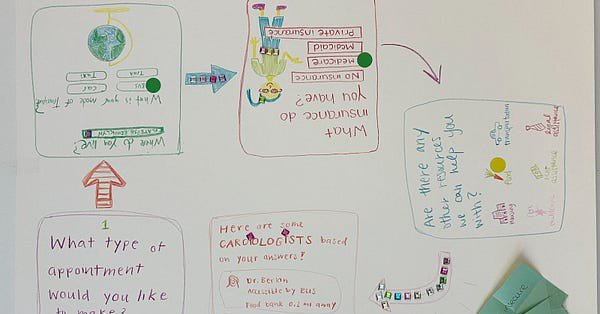 1
What type of
appointment
would you like
to make?
Where do you live?
What is your mode of Transport?
BUS
Car
Train
Taxi
What
insurance do
you have?
No insurance
Medicare
Medicaid
Private insurance
Are there any
other resources
we can help you
with?
housing
Food
transportation
legal
assistance
Here are some
CARDIOLOGISTS based
on your answers!
Accessible by BUS
Food bank 0.2 mi away
secure